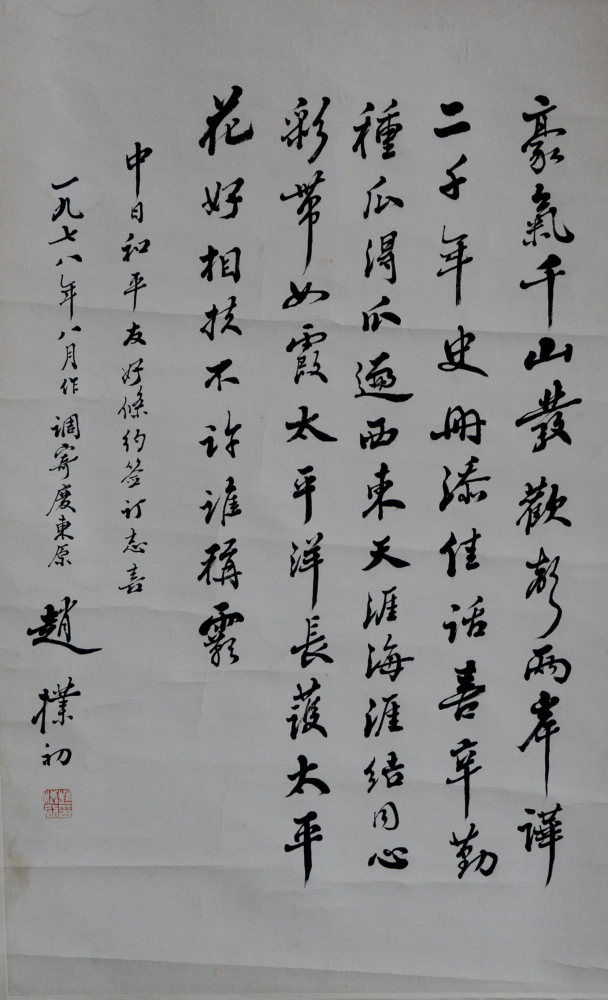 豪氣千山發歡聲兩岸譁
二千年史冊添佳話喜辛勤
種瓜得瓜遍西東天涯海涯結同心
彩帶如霞太平洋長護太平
花好相扶不許誰稱霸
中日和平友好條約签订志喜
一九七八年八月作 调寄慶東原
趙樸初